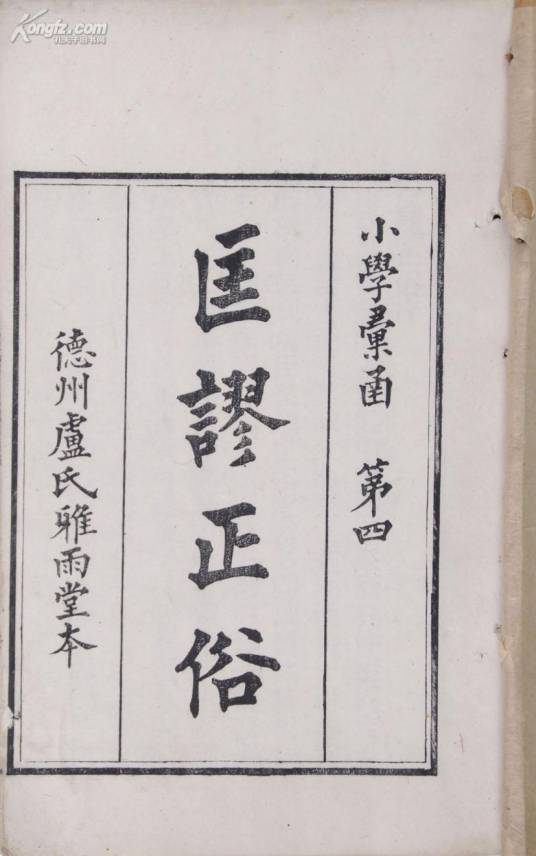 小學彙函 第四
匡謬正俗
德州盧氏雅雨堂本
Kongfz.com
孔夫子旧书网